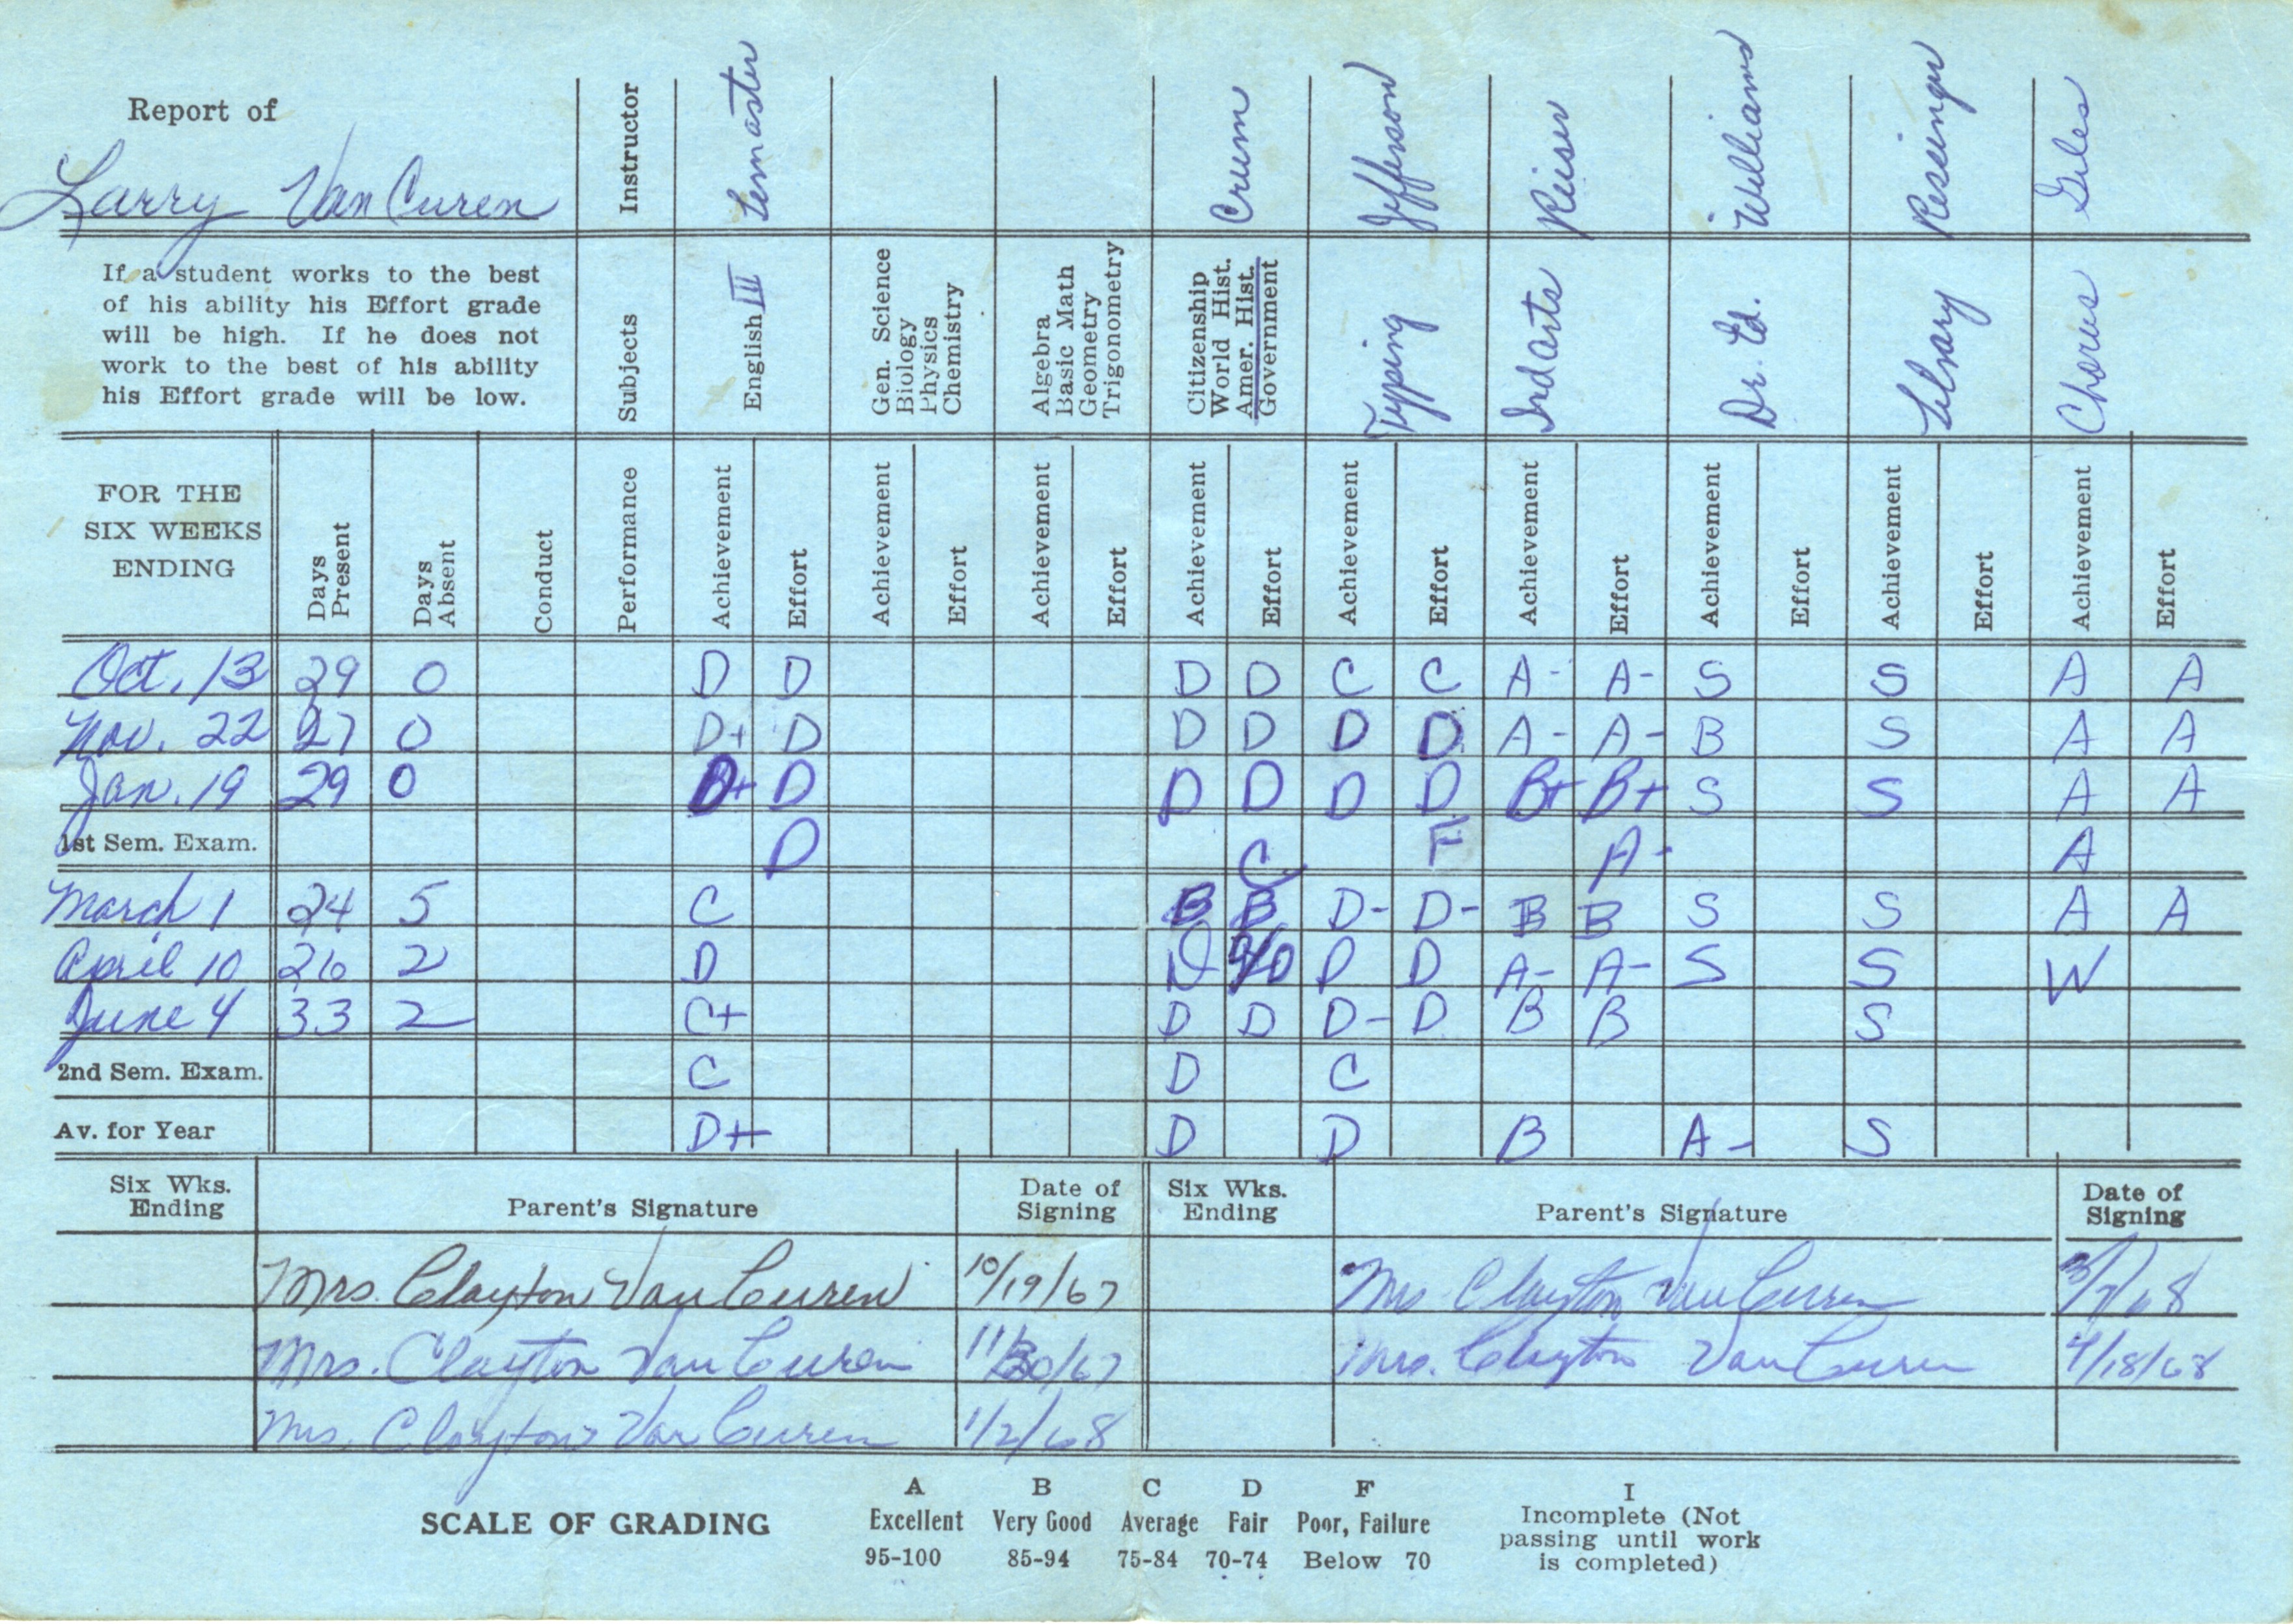 Report of
Larry VanCuren
Instructor
Lemaster
Crum
Jefferson
Reiser
Williams
Ressinger
Giles
If a student works to the best
of his ability his Effort grade
will be high. If he does not
work to the best of his ability
his Effort grade will be low.
Subjects
English III
Gen. Science
Biology
Physics
Chemistry
Algebra
Basic Math
Geometry
Trigonometry
Citizenship
World Hist.
Amer. Hist.
Government
Typing
Ind arts
Dr. Ed.
Library
Chorus
FOR THE
SIX WEEKS
ENDING
Days Present
Days Absent
Conduct
Performance
Achievement Effort Achievement Effort Achievement Effort Achievement Effort Achievement Effort Achievement Effort Achievement Effort Achievement Effort Achievement Effort
Oct. 13 29 0 D D D D C C A- A- S S A A
Nov. 22 27 0 D+ D D D D D A- A- B S A A
Jan. 19 29 0 D+ D D D D D B+ B+ S S A A
1st Sem. Exam. D C F A- A
March 1 24 5 C B B D- D- B B S S A A
April 10 26 2 D D D D D A- A- S S W
June 4 33 2 C+ D D D- D B B S
2nd Sem. Exam. C D C
Av. for Year D+ D D B A- S
Six Wks. Ending Parent's Signature Date of Signing Six Wks. Ending Parent's Signature Date of Signing
Mrs. Clayton Van Curen 10/19/67 Mrs Clayton Van Curen 3/7/68
Mrs. Clayton Van Curen 11/30/67 Mrs. Clayton Van Curen 4/18/68
Mrs. Clayton Van Curen 1/2/68
SCALE OF GRADING
A B C D F I
Excellent Very Good Average Fair Poor, Failure
95-100 85-94 75-84 70-74 Below 70
Incomplete (Not
passing until work
is completed)